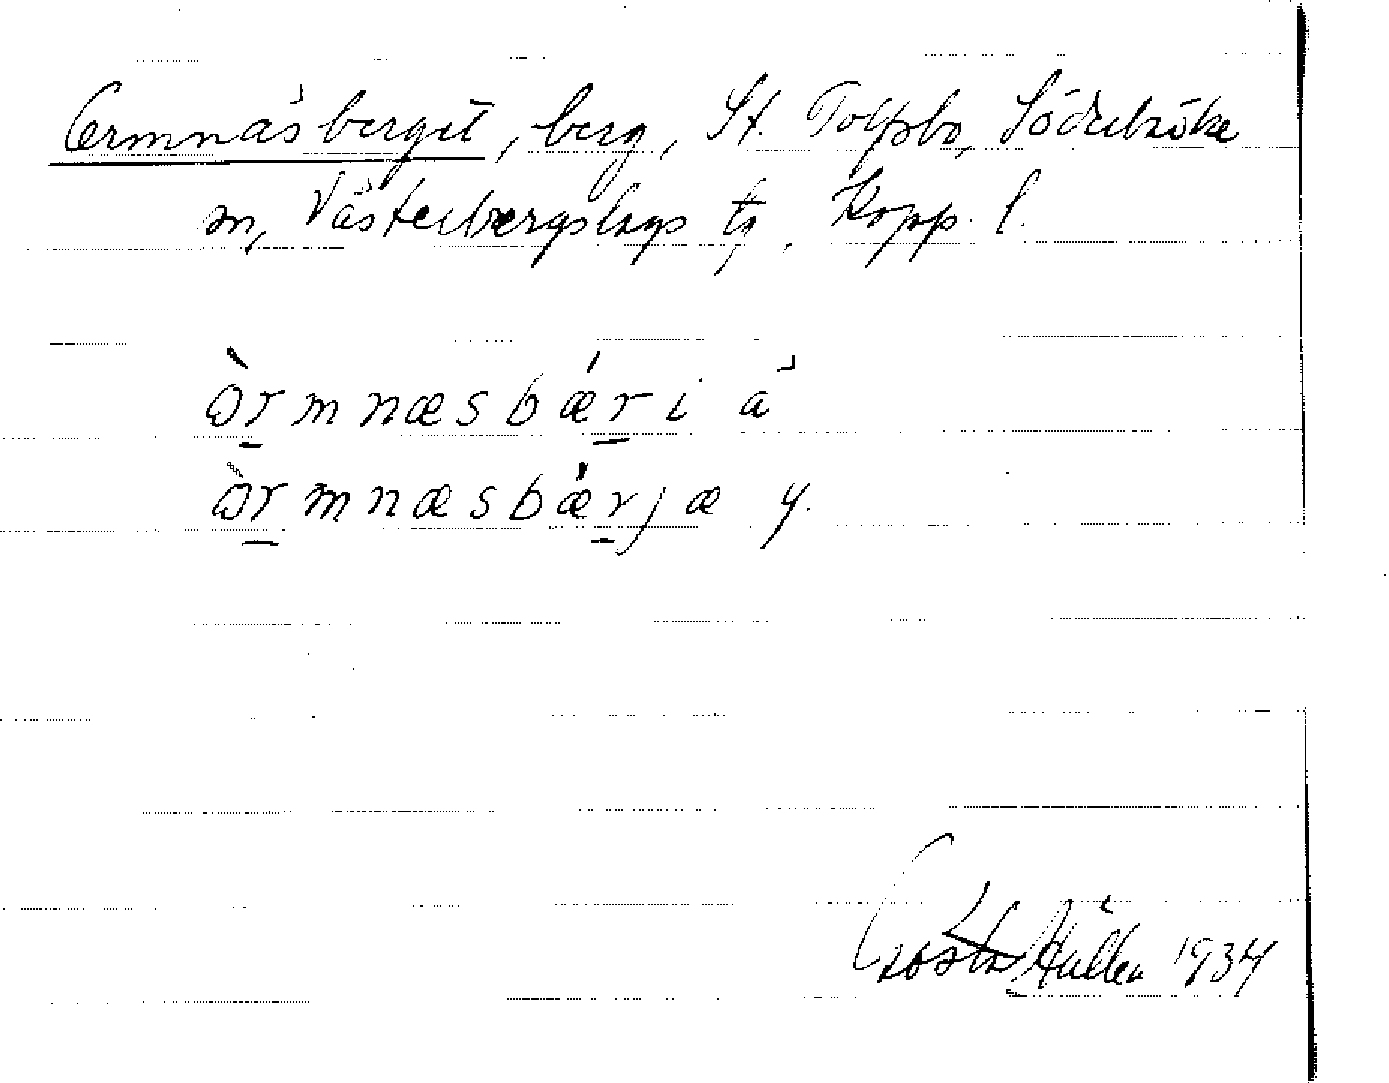 Ormnäsberget, berg, St. Tolfsbo, Söderbärke
sn, Västerbergslags tg, Kopp. l.
ɷ̀rmnæsbǽri ä
ɷ̀rmnæsbǽrjæ y.
Gösta Hüllen 1934